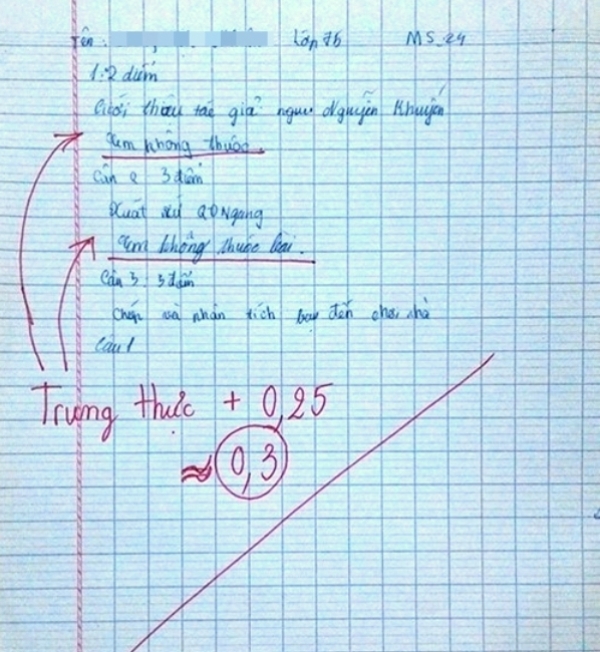 Tên : Lớp 7b MS_24
1: 2 điểm
Giới thiệu tác giả Nguyễn Khuyến
Em không thuộc.
Câu 2 3 điểm
Xuất xứ QĐNgang
Em không thuộc bài.
Câu 3 : 3 điểm
Chép và phân tích bạn đến chơi nhà
Câu 1
Trung thực + 0,25
≈ 0,3